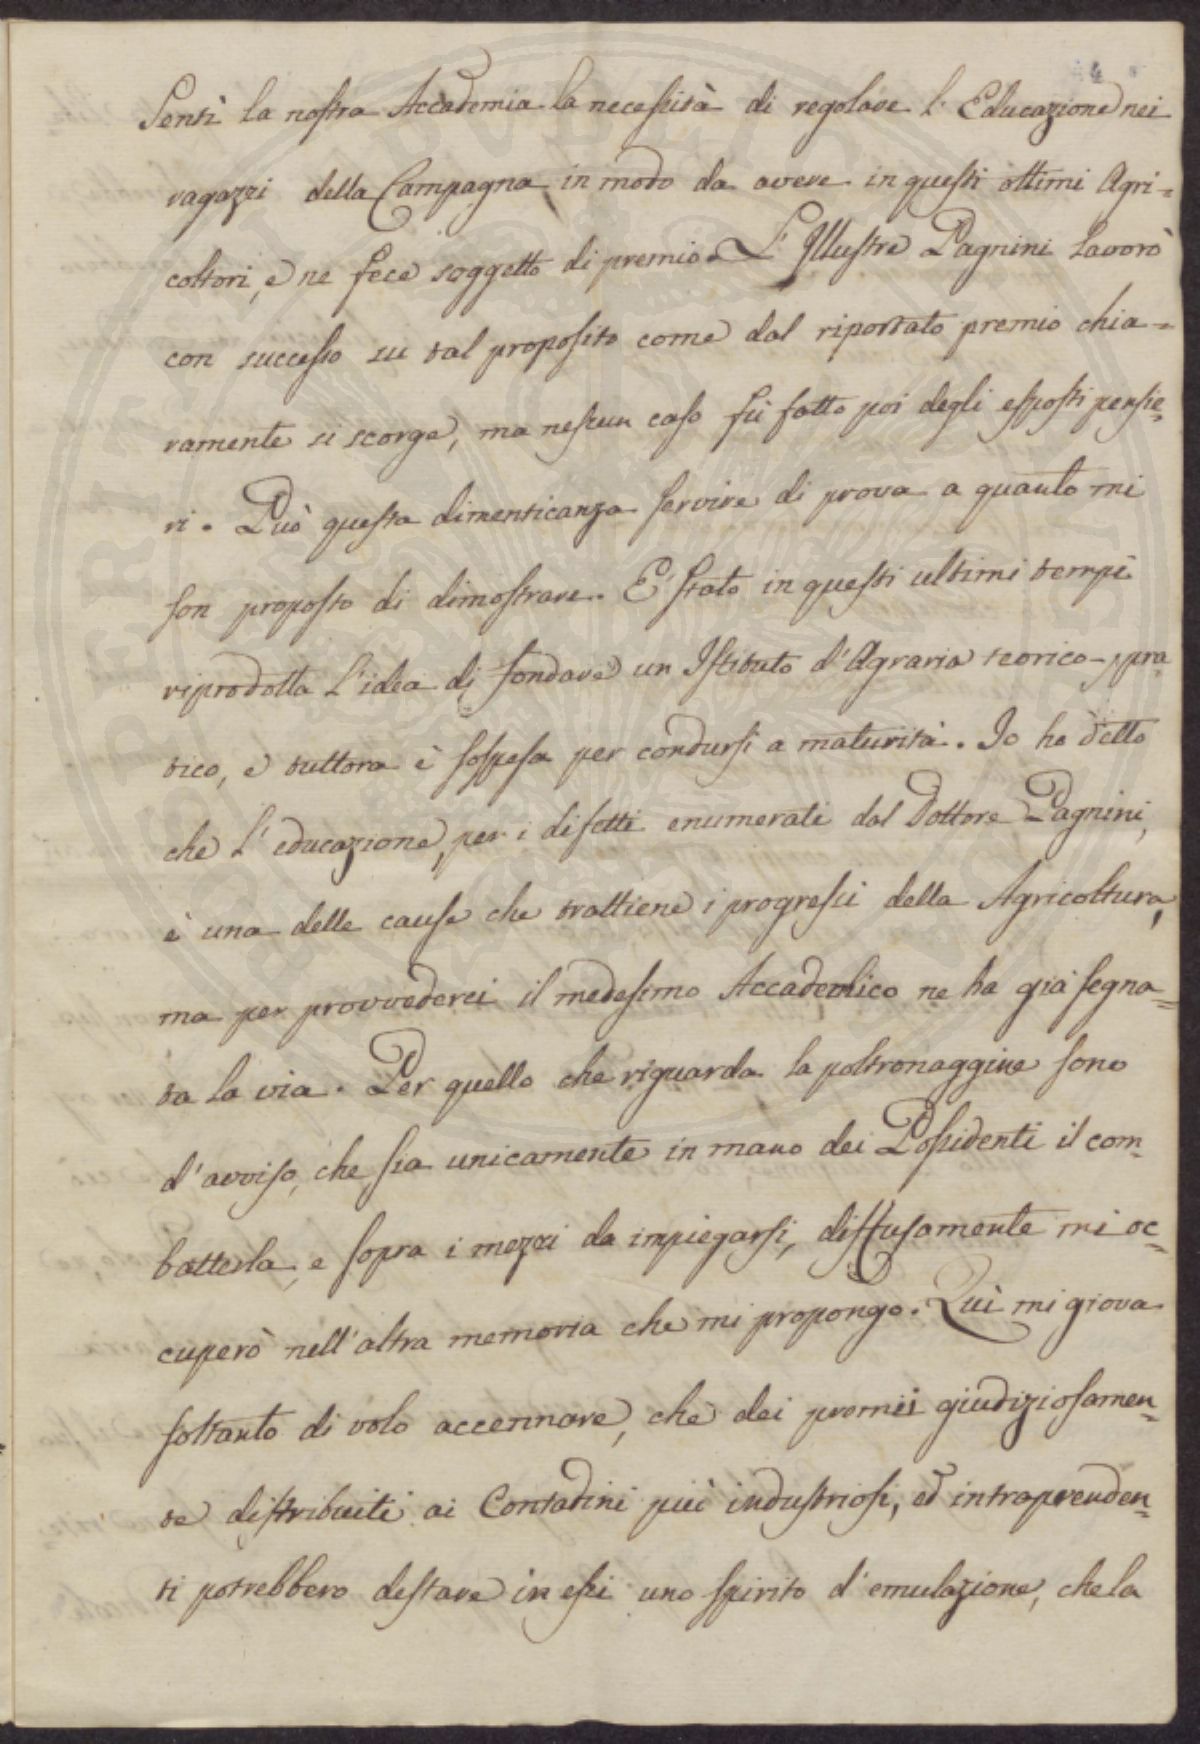 4
Sentì la nostra Accademia la necessità di regolare l'Educazione nei
ragazzi della Campagna in modo da avere in questi ottimi Agri=
coltori, e ne fece soggetto di premio. L'Illustre Pagnini lavorò
con successo su tal proposito come dal riportato premio chia=
ramente si scorge, ma nessun caso fù fatto poi degli esposti pensie=
ri. Può questa dimenticanza servire di prova a quanto mi
son proposto di dimostrare. E' stato in questi ultimi tempi
riprodotta l'idea di fondare un Istituto d'Agraria teorico-pra
tico, e tuttora è sospesa per condursi a maturità. Io ho detto
che l'educazione, per i difetti enumerati dal Dottore Pagnini,
è una delle cause che trattiene i progressi della Agricoltura,
ma per provvederci il medesimo Accademico ne ha già segna=
ta la via. Per quello che riguarda la poltronaggine sono
d'avviso, che sia unicamente in mano dei Possidenti il com=
batterla, e sopra i mezzi da impiegarsi, diffusamente mi oc=
cuperò nell'altra memoria che mi propongo. Quì mi giova
soltanto di volo accennare, che dei premii giudiziosamen=
te distribuiti ai Contadini più industriosi, ed intraprenden=
ti potrebbero destare in essi uno spirito d'emulazione, che la